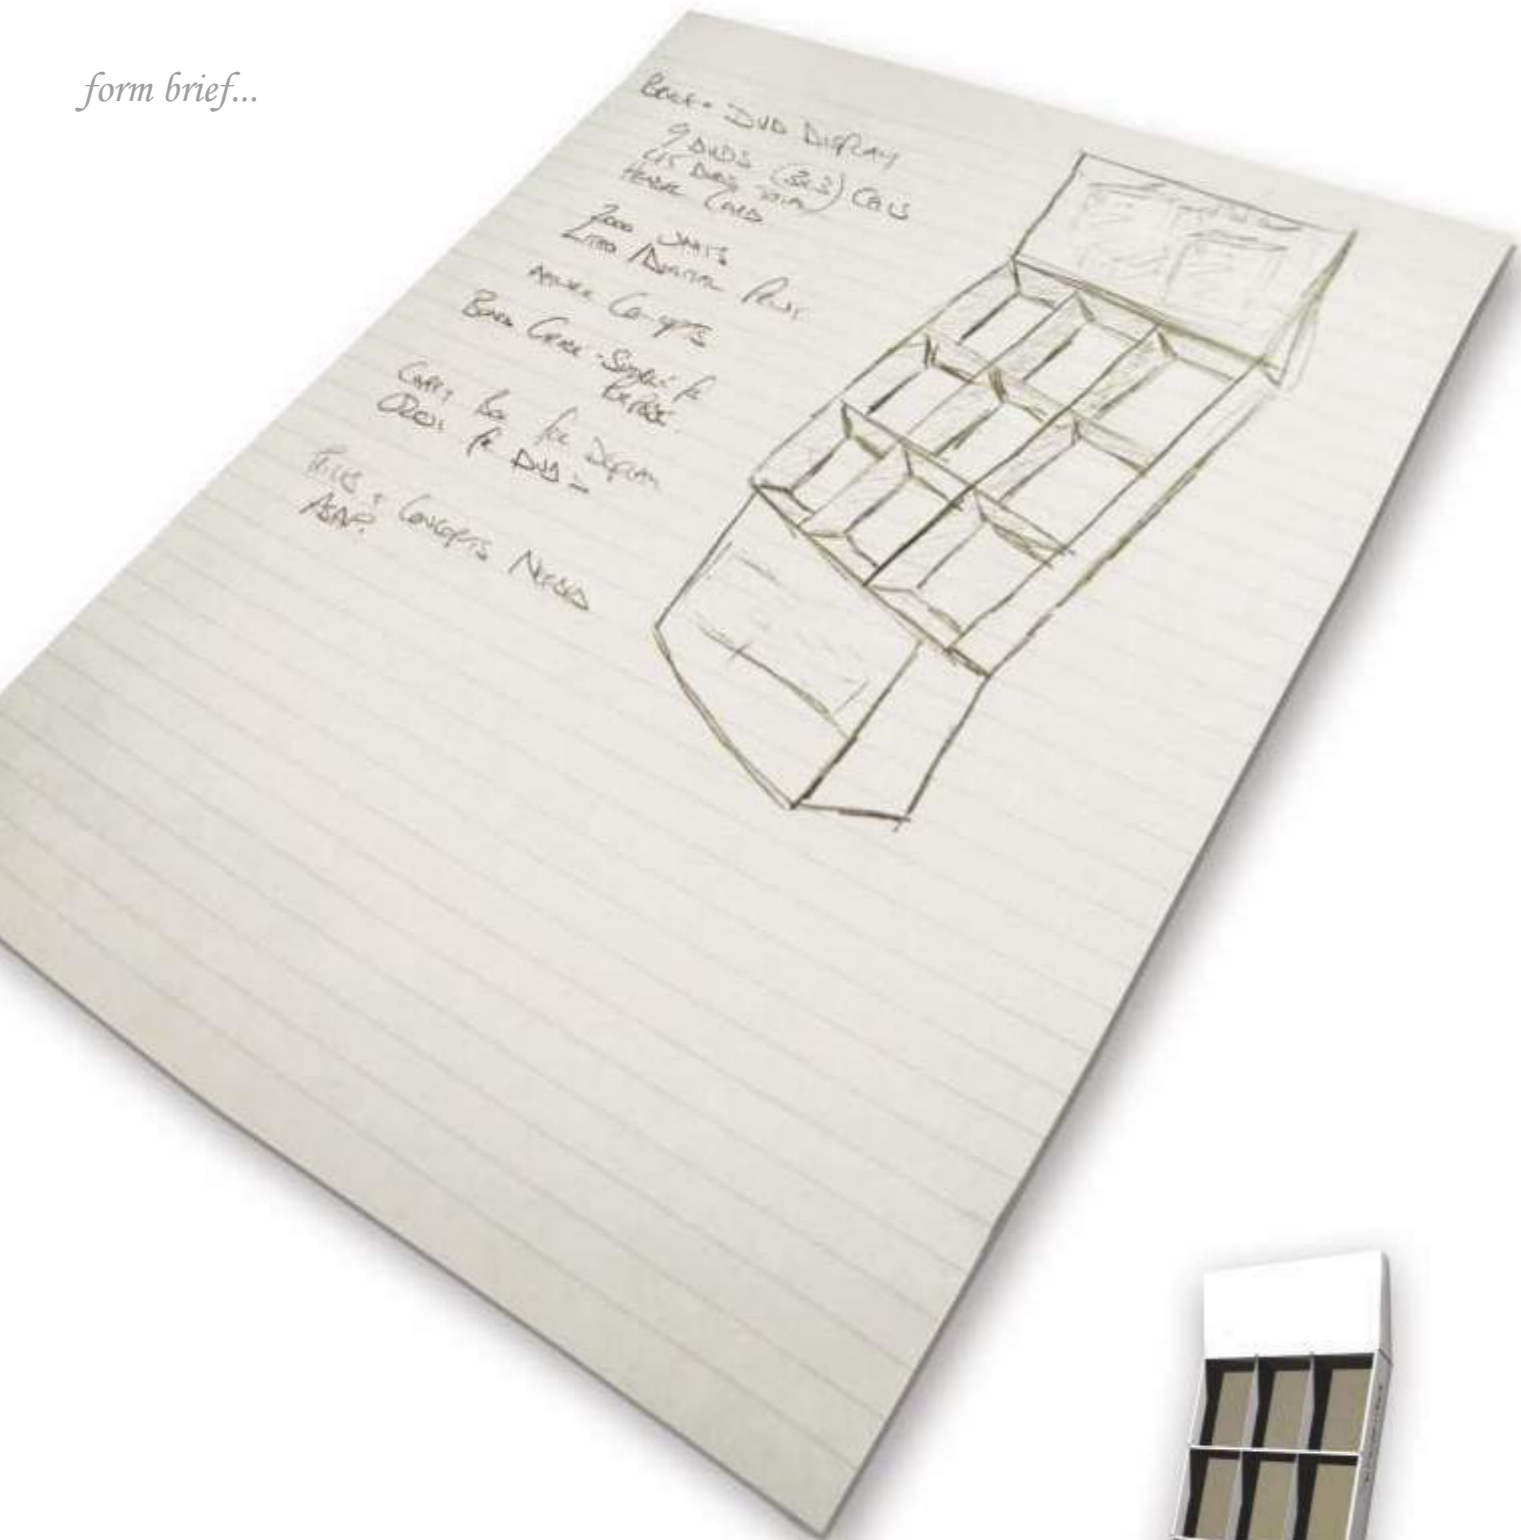 form brief...
DVD DISPLAY
9 DVDS (3x3) CELLS
45 DVDS
HEADER CARD
UNITS
LITHO / DIGITAL PRINT
CONCEPTS
BOARD GRADE - SUITABLE for
PURPOSE.
Box for DISPLAY
for DVDs
PRICES + CONCEPTS NEEDED
ASAP?